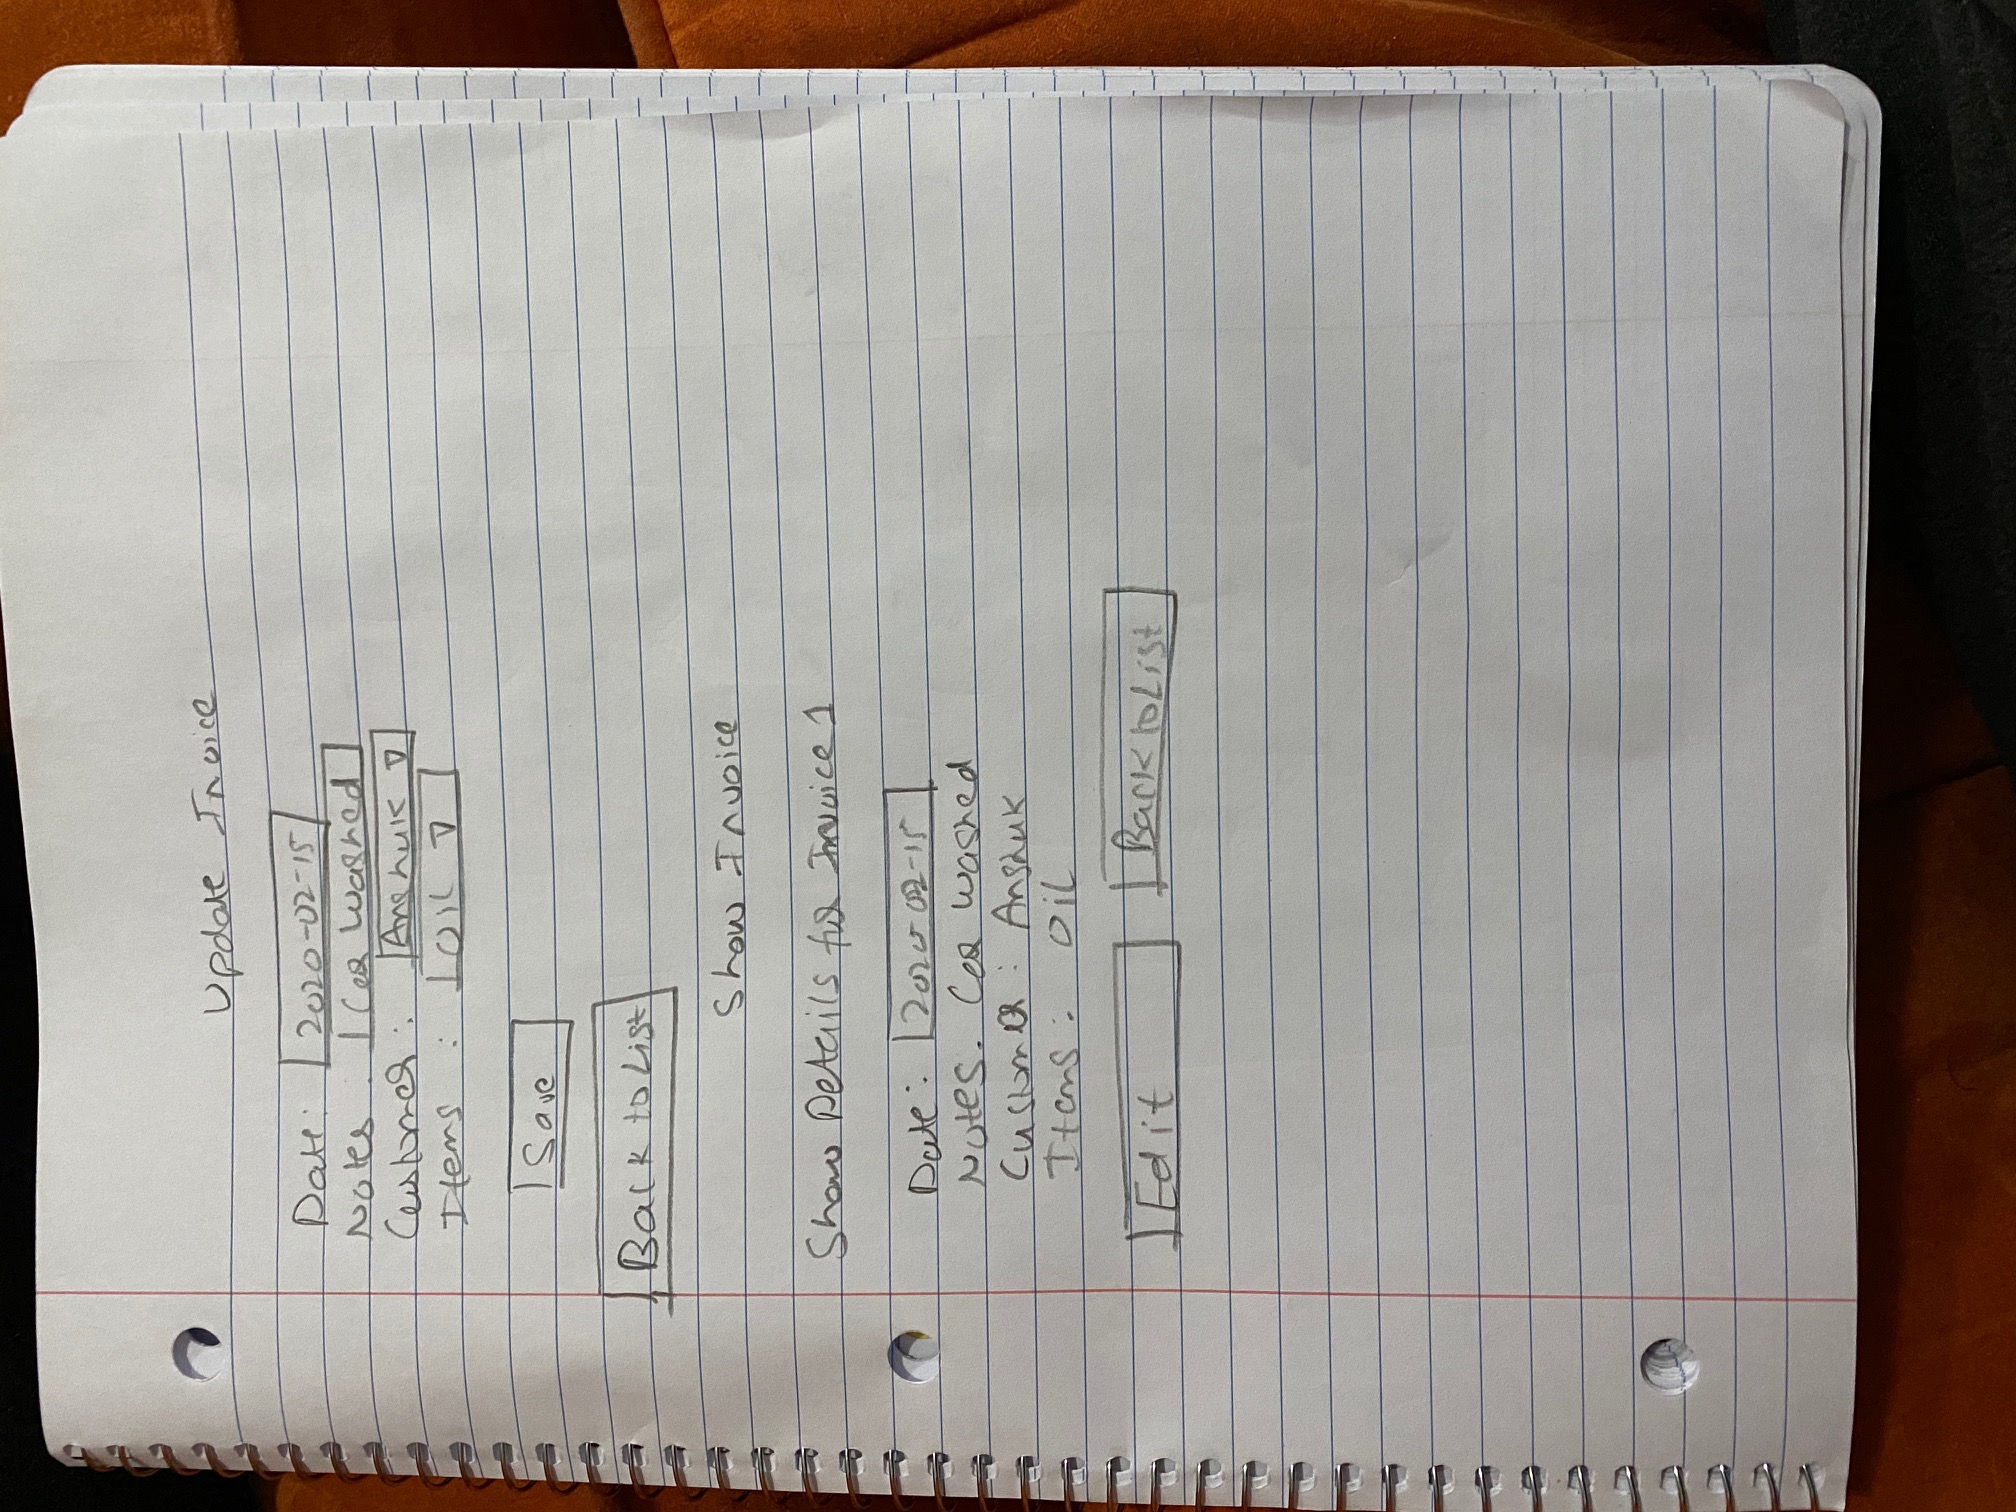 Update Invoice
Date: 2020-02-15
Notes. Car Washed
Customer: Anshuk
Items: Oil
Save
Back to List
Show Invoice
Show Details for Invoice 1
Date: 2020-02-15
Notes. Car Washed
Customer: Anshuk
Items: Oil
Edit Back to List